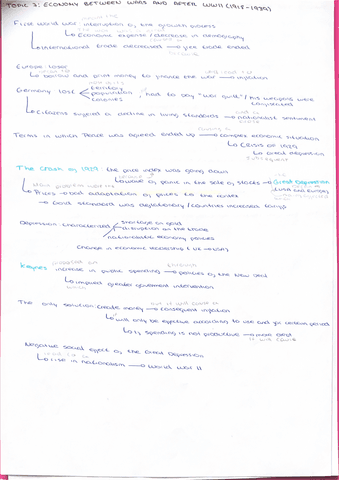 TOPIC 7: ECONOMY BETWEEN WARS AND AFTER WWII (1918-1939)
First world war interruption of the growth process
Economic expense / decrease in demography
International trade decreased → free trade ended
Europe losses
to borrow and print money to finance the war → inflation
Germany lost territory
population
colonies
had to pay "war guilt" / his weapons were
Citizens suffered a decline in living standards → nationalist sentiment
Terms in which Peace was agreed ended up → complex economic situation
CRISIS OF 1929
Great depression
The Crash of 1929: the price index was going down
wave of panic in the sale of stocks → Great Depression
USA and Europe
Prices → bad adaptation of prices to the market
→ Gold standard was deflationary / countries increased tariffs
Depression characterised
shortage on gold
disruption on the trade
nationalistic economy policies
change in economic leadership (UK → USA)
Keynes increase in public spending → policies of the New Deal
implied greater government intervention
The only solution: create money → consequent inflation
will only be effective according to use and for certain period
If spending is not productive → more debt
Negative social effect of the Great Depression
rise in nationalism → World War II